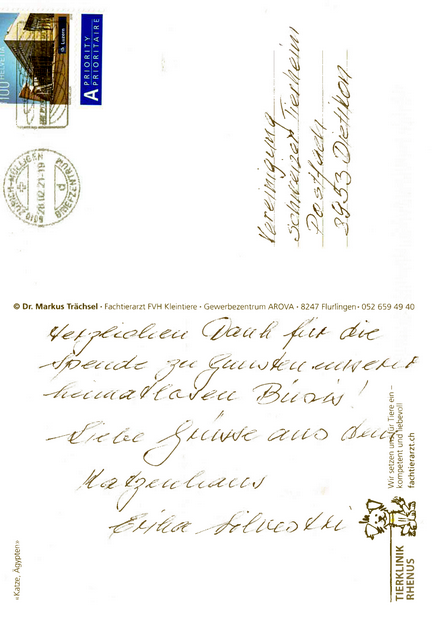 100 HELVETIA
Luzern
A PRIORITY
PRIORITAIRE
ZÜRICH-MÜLLIGEN
26.02.21-19
BRIEFZENTRUM
Vereinigung
Schweizer Tierheim
Postfach
8953 Dietikon
© Dr. Markus Trächsel · Fachtierarzt FVH Kleintiere · Gewerbezentrum AROVA · 8247 Flurlingen · 052 659 49 40
Herzlichen Dank für die
Spende zu Gunsten unserer
heimatlosen Büsis!
Liebe Grüsse aus dem
Katzenhaus
Erika Silvestri
Wir setzen uns für Tiere ein –
kompetent und liebevoll
fachtierarzt.ch
TIERKLINIK
RHENUS
«Katze, Ägypten»